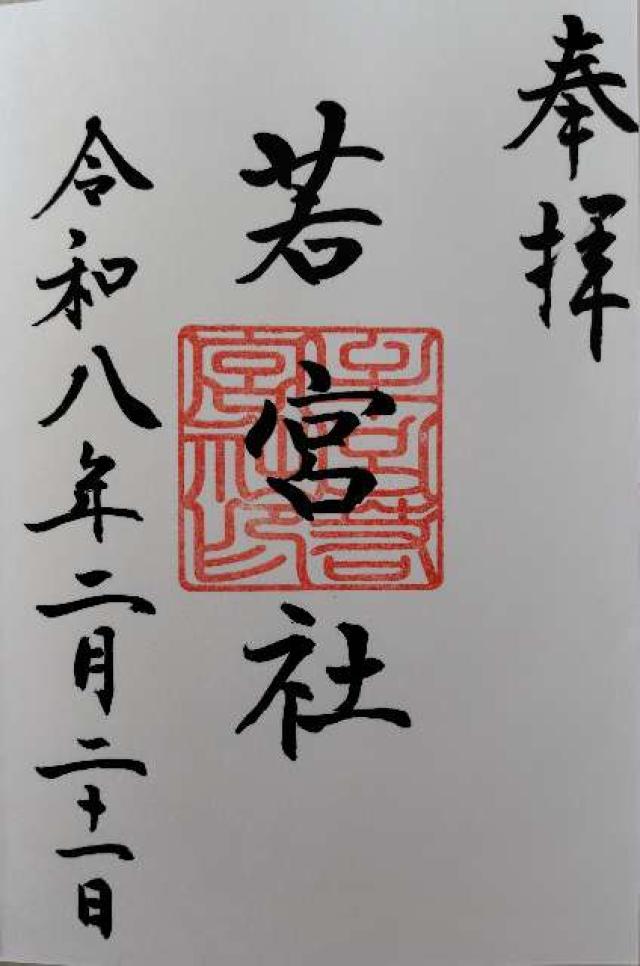 奉拝
若宮社
令和八年二月二十一日